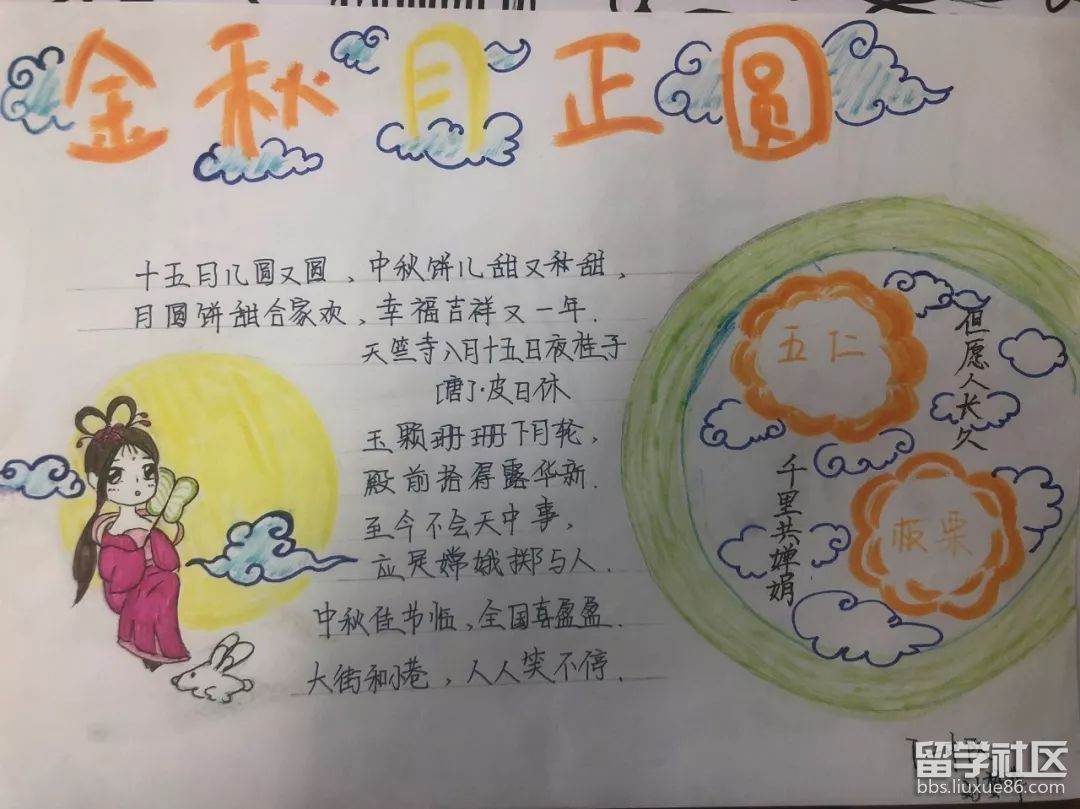 金秋月正圆
十五月儿圆又圆，中秋饼儿甜又甜，
月圆饼甜合家欢，幸福吉祥又一年.
天竺寺八月十五日夜桂子
[唐]·皮日休
玉颗珊珊下月轮，
殿前拾得露华新.
至今不会天中事，
应是嫦娥掷与人.
中秋佳节临，全国喜盈盈.
大街和小巷，人人笑不停.
五仁
但愿人长久
千里共婵娟
板栗
留学社区
bbs.liuxue86.com